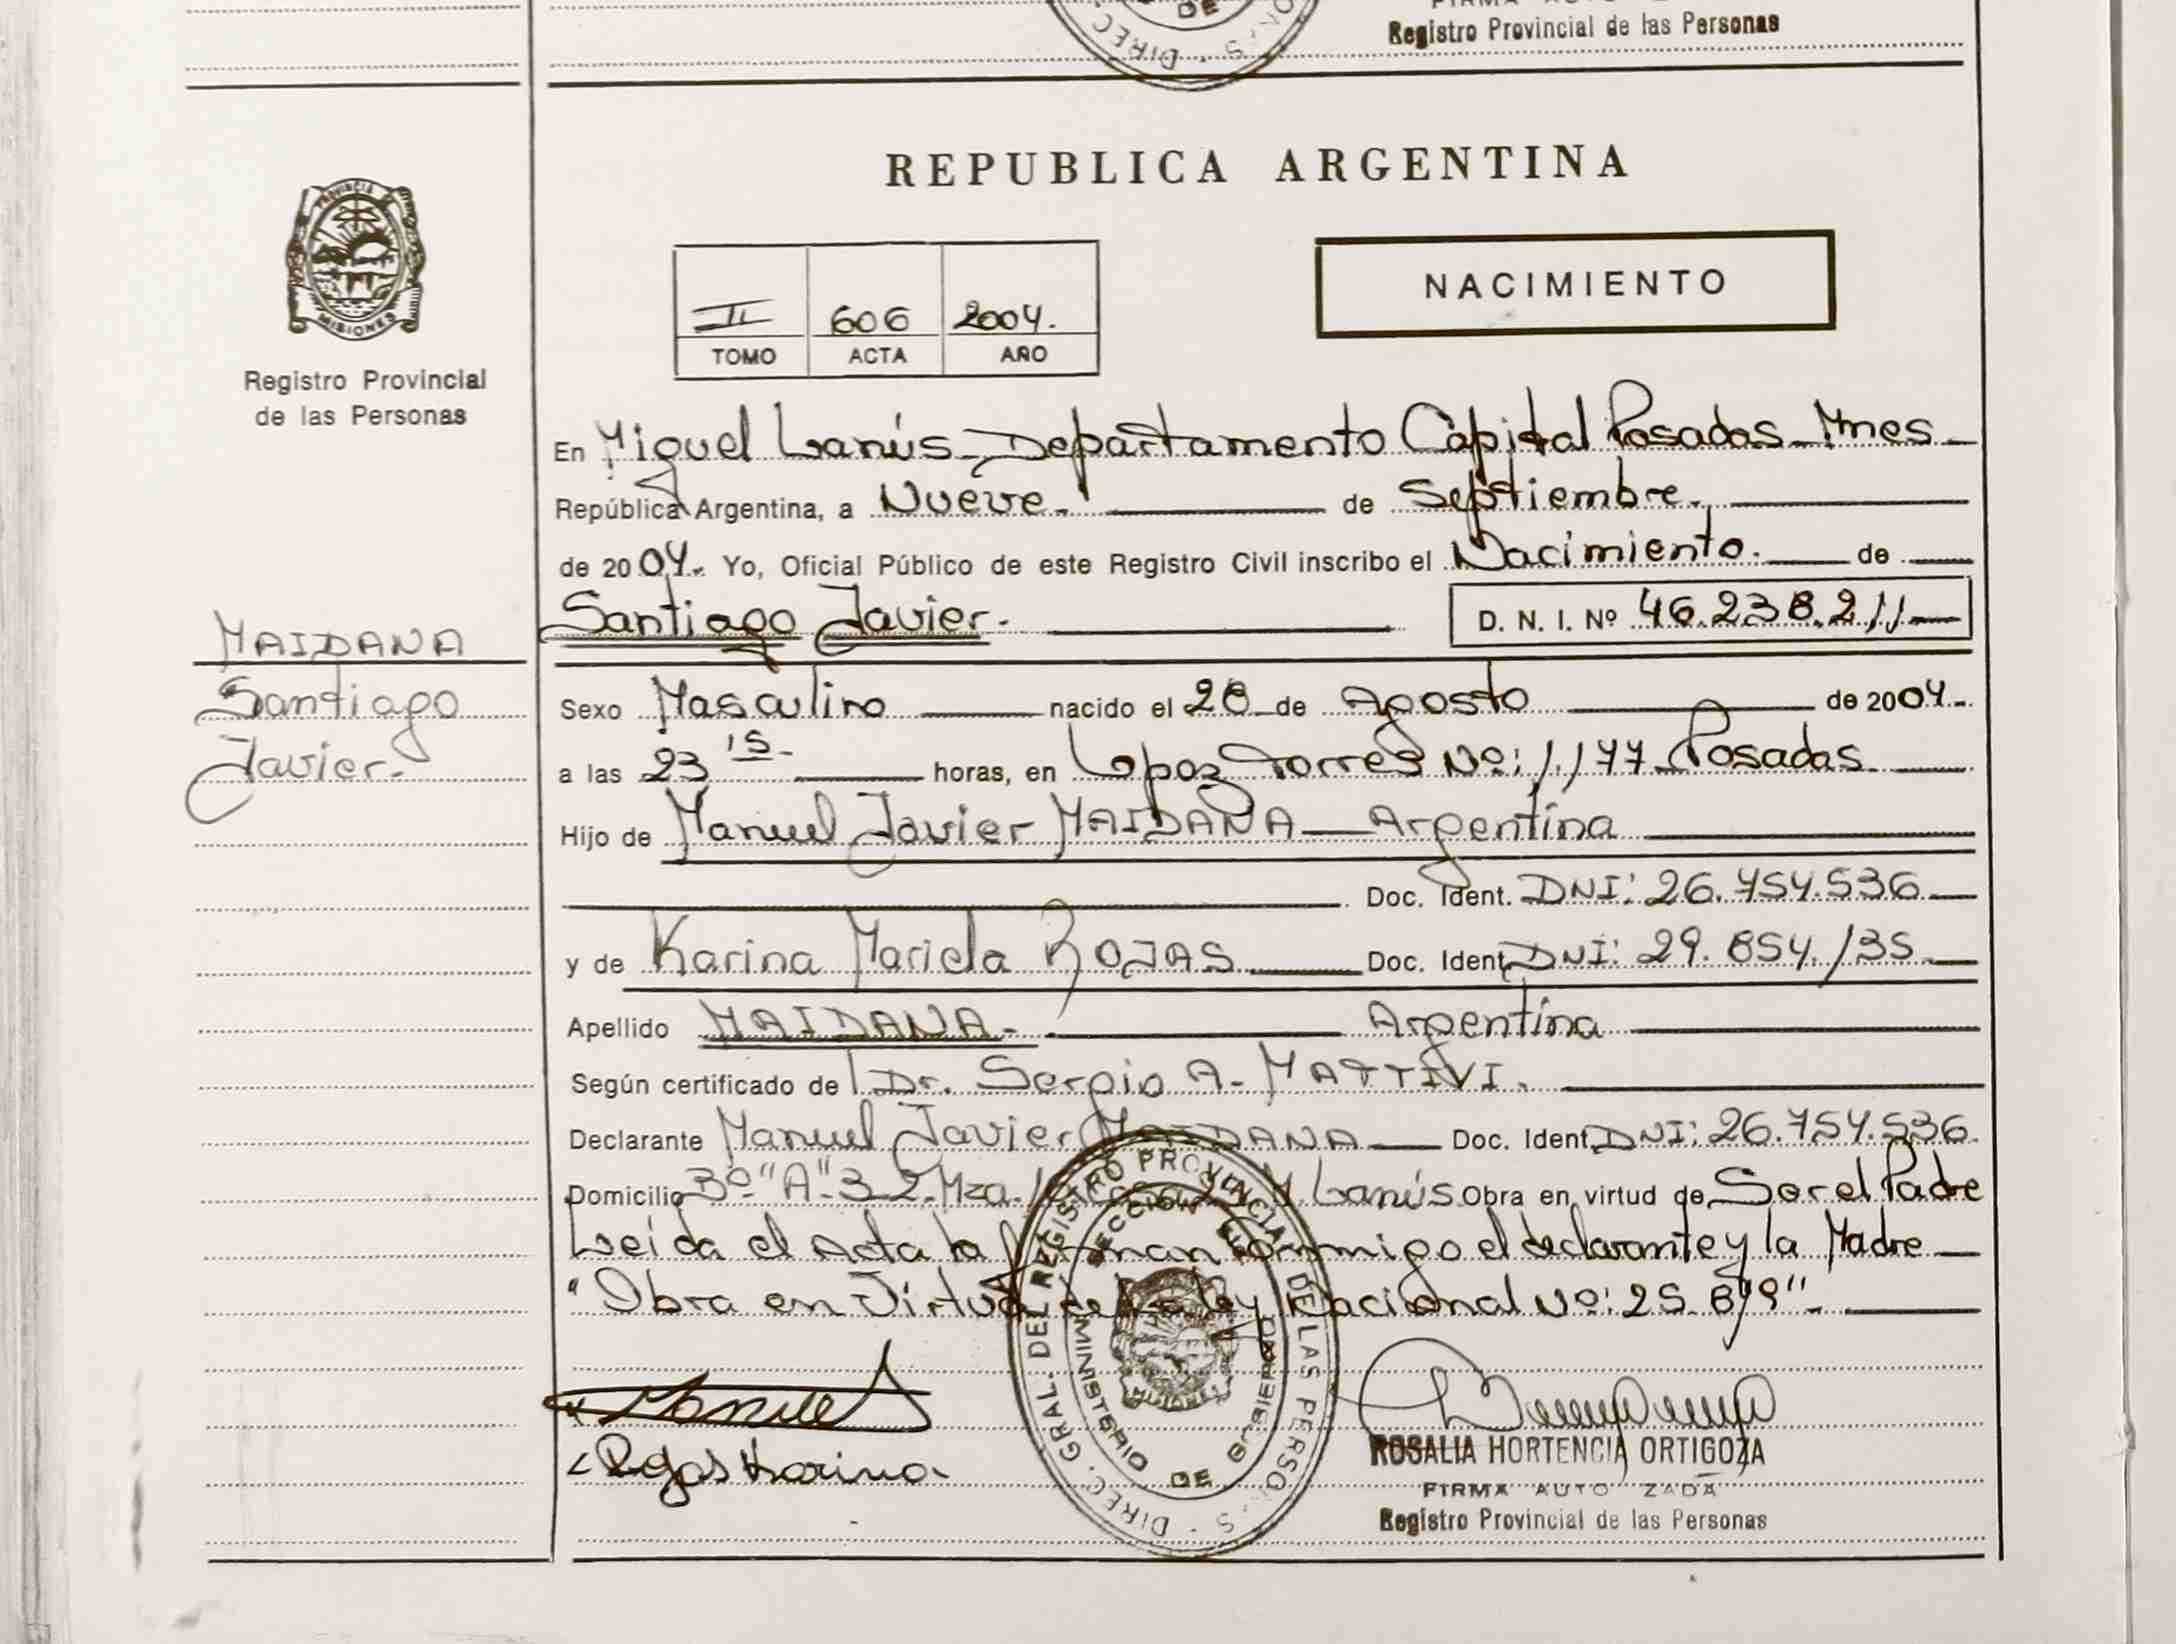 DE
DIREC
Registro Provincial de las Personas
REPUBLICA ARGENTINA
PROVINCIA
MISIONES
Registro Provincial
de las Personas
NACIMIENTO
II 606 2004.
TOMO ACTA AÑO
En Miguel Lanús - Departamento Capital Posadas - Mnes -
República Argentina, a Nueve. de Septiembre.
de 2004. Yo, Oficial Público de este Registro Civil inscribo el Nacimiento. de
Santiago Javier. D. N. I. Nº 46.238.211
MAIDANA
Santiago
Javier.
Sexo Masculino nacido el 28 de Agosto de 2004.
a las 23 15 horas, en Lopez Torres Nº: 1.177 Posadas
Hijo de Manuel Javier MAIDANA - Argentina
Doc. Ident. DNI: 26.754.536
y de Karina Mariela ROJAS Doc. Ident. DNI: 29.854.135
Apellido MAIDANA. Argentina
Según certificado de Dr. Sergio A. MATTIVI.
Declarante Manuel Javier MAIDANA Doc. Ident. DNI: 26.754.536
Domicilio Bº "A" 3 2 Mza. Lanús Obra en virtud de Ser el Padre
Leída el Acta la firman conmigo el declarante y la Madre
"Obra en Virtud de la ley Nacional Nº: 25.819"
DIREC. GRAL. DEL REGISTRO PROVINCIAL DE LAS PERSONAS
MINISTERIO DE GOBIERNO
MISIONES
Rojas Karina
ROSALIA HORTENCIA ORTIGOZA
FIRMA AUTO ZADA
Registro Provincial de las Personas